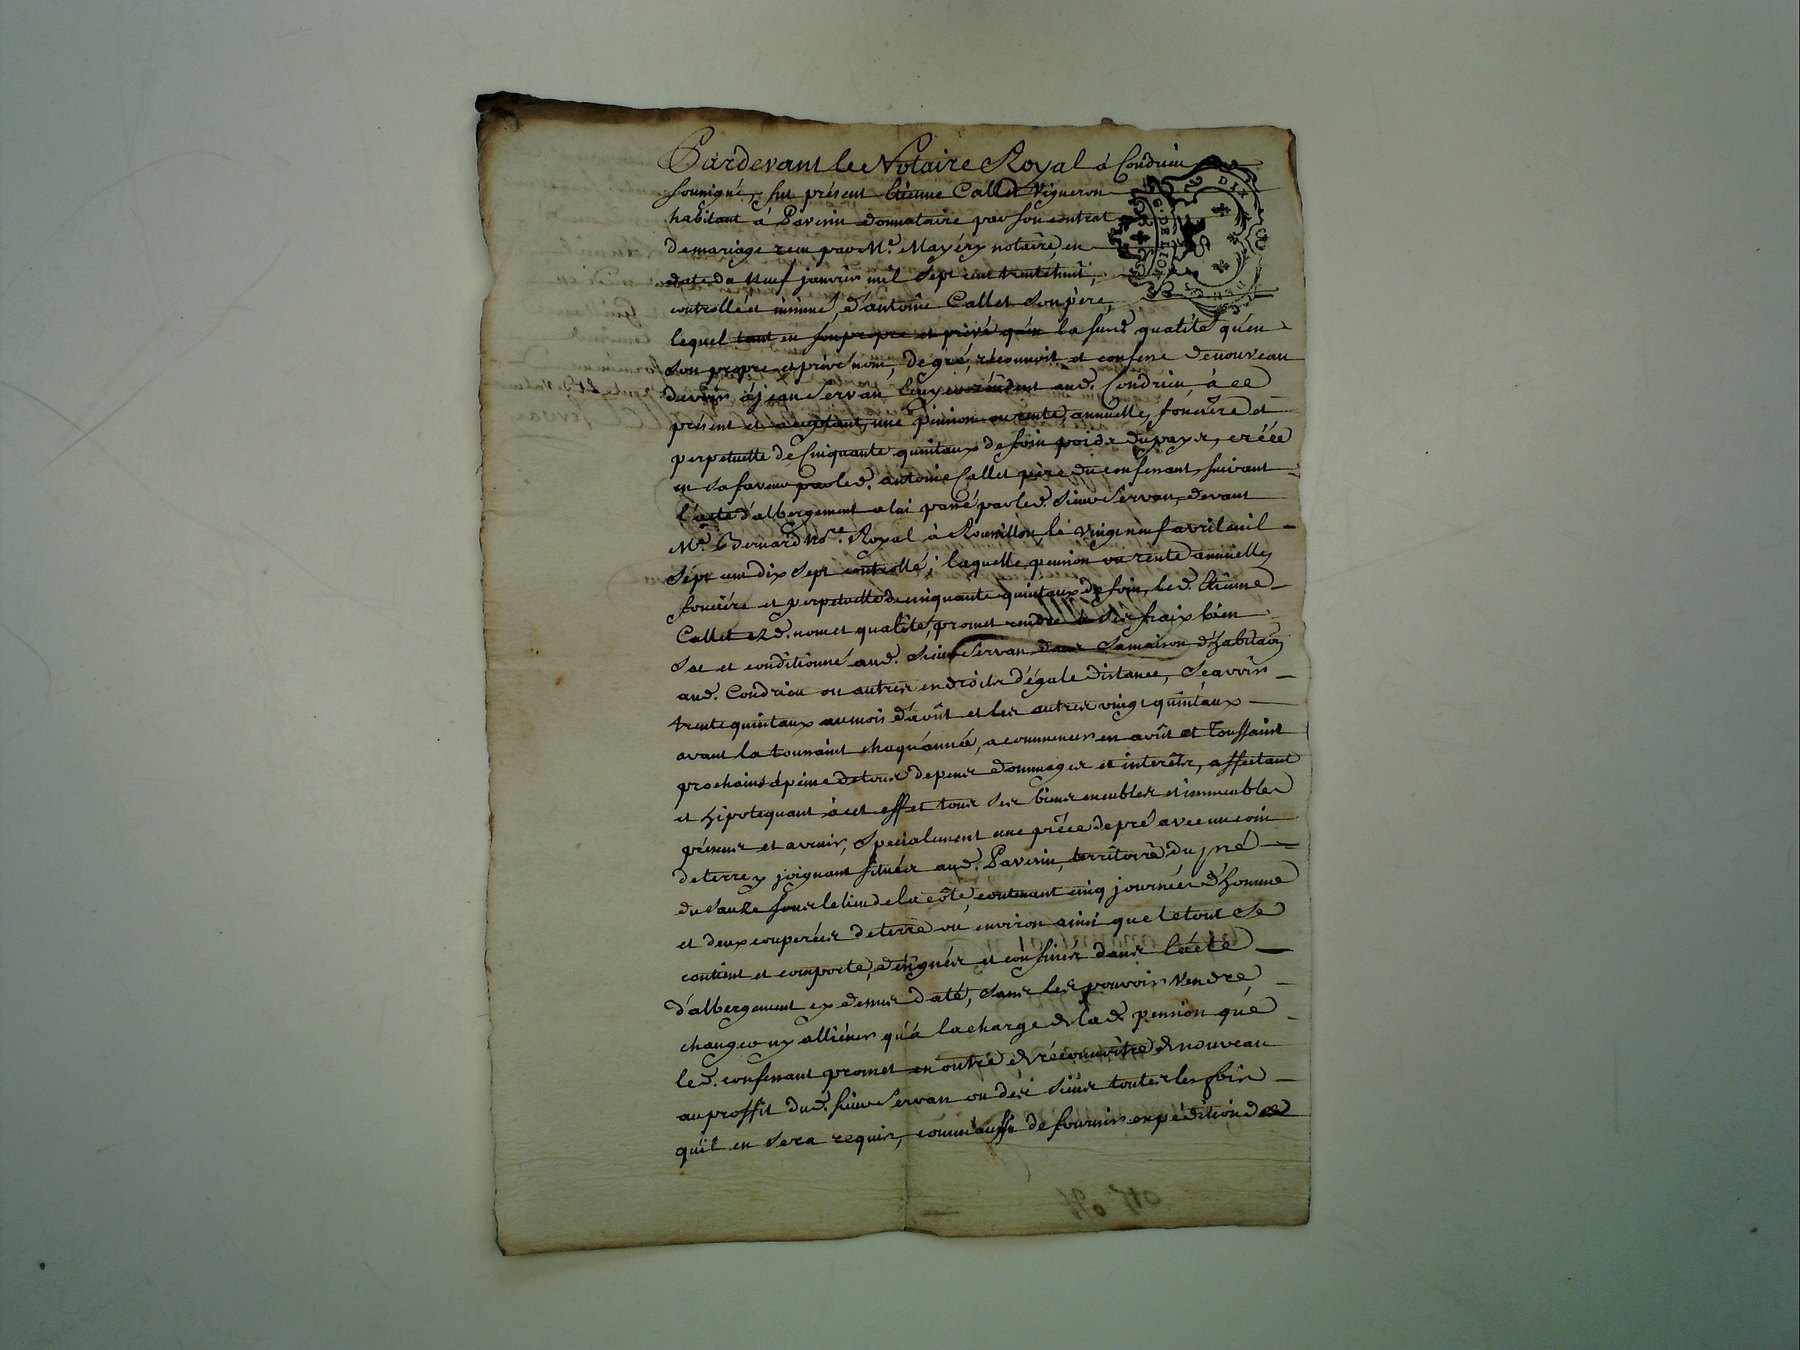 Pardevant le Notaire Royal à Condrieu
soussigné, fut présent Etienne Callet Vigneron
habitant à Pavesin donnataire par son contrat
de mariage receu par Me. Mayéry notaire, en
date du neuf janvier mil sept cent trentehuit,
controllé et insinué, d'antoine Callet son père,
lequel tant en son propre et privé qu'en la susd. qualité qu'en
son propre et privé nom, de gré, réconnoit et confesse de nouveau
devoir à jean Servan aud. Condrieu, à ce
présent et acceptant, une pension ou rente annuelle, foncière et
perpetuelle de Cinquante quintaux de foin poids du pays, créée
en sa faveur par led. antoine Callet père du confessant, suivant
l'acte d'albergement a lui passé par led. Sieur Servan, devant
Me. Bernard Nore. Royal à Roussillon, le vingt neuf avril mil
sépt cent dix sept controllé; laquelle pension ou rente annuelle,
foncière et perpetuelle de cinquante quintaux de foin, led. Etienne
Callet ezd. nom et qualité, promet rendre à ses fraix bien
sec et conditionné aud. Sieur Servan dans sa maison d'habitaon
aud. Condrieu ou autres endroits d'égale distance, sçavoir
trente quintaux au mois d'août et les autres vingt quintaux
avant la toussaint chaqu'année, a commencer en août et Toussaint
prochains à peine de tous depens dommages et interêts, affectant
et hipotequant à cet effet tous ses biens meubles et immeubles
présens et avenir, spécialement une pièce de pré avec un coin
de terre y joignant situés aud. Pavesin, territoire du pré
du sauze sous le lieu de la côte, contenant cinq journées d'homme
et deux couperées de terre ou environ ainsi que le tout se
contient et comporte, désignés et confinés dans l'acte
d'albergement cy dessus daté, sans les pouvoir vendre,
changer ny alliéner qu'à la charge de lad. pension que
led. confessant promet en outre de réconnoître de nouveau
au proffit dud. sieur Servan ou des siens toutes les fois
qu'il en sera requis, comm'aussi de fournir expédition de